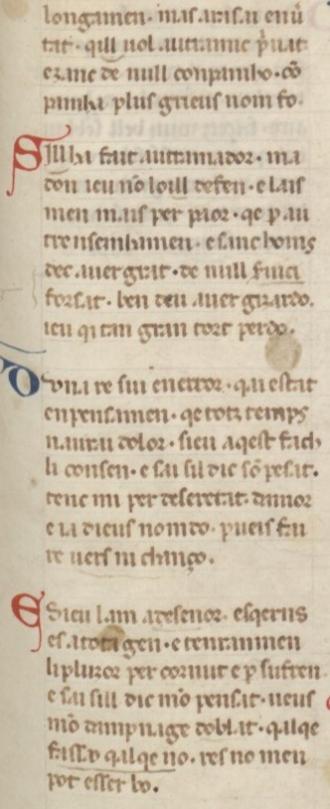 longamen · mas aisi u enū
tat · qill uol autramic p̄uat
ezanc de null conpainho · cō
painhia plus grieus nom fo ·
Sill ha fait autramador · mi
don ieu nō loill defen · e lais
men mais per paor · qe p au
tre nsenhamen · e sanc homs
dec auer grat · de null
forsat · ben deu auer gizardo ·
ieu qi tan gran tort perdo ·
re sui en error · qai estat
en pensamen · qe totz temps
naurai dolor · sieu aqest fach
li consen · e sai sil dic sō pesat ·
tenc mi per deseretat · damor
e ia dieus nom do · pueis fai
re uers ni chanço ·
E sieu lam a desenor · esqerns
es a tota gen · e tenran men
li pluzor per cornut e p sufren
e sai sill dic mō pensat · ueus
mō dampnage doblat · qalqe
fassa o qalqe no · res no men
pot esser bo ·